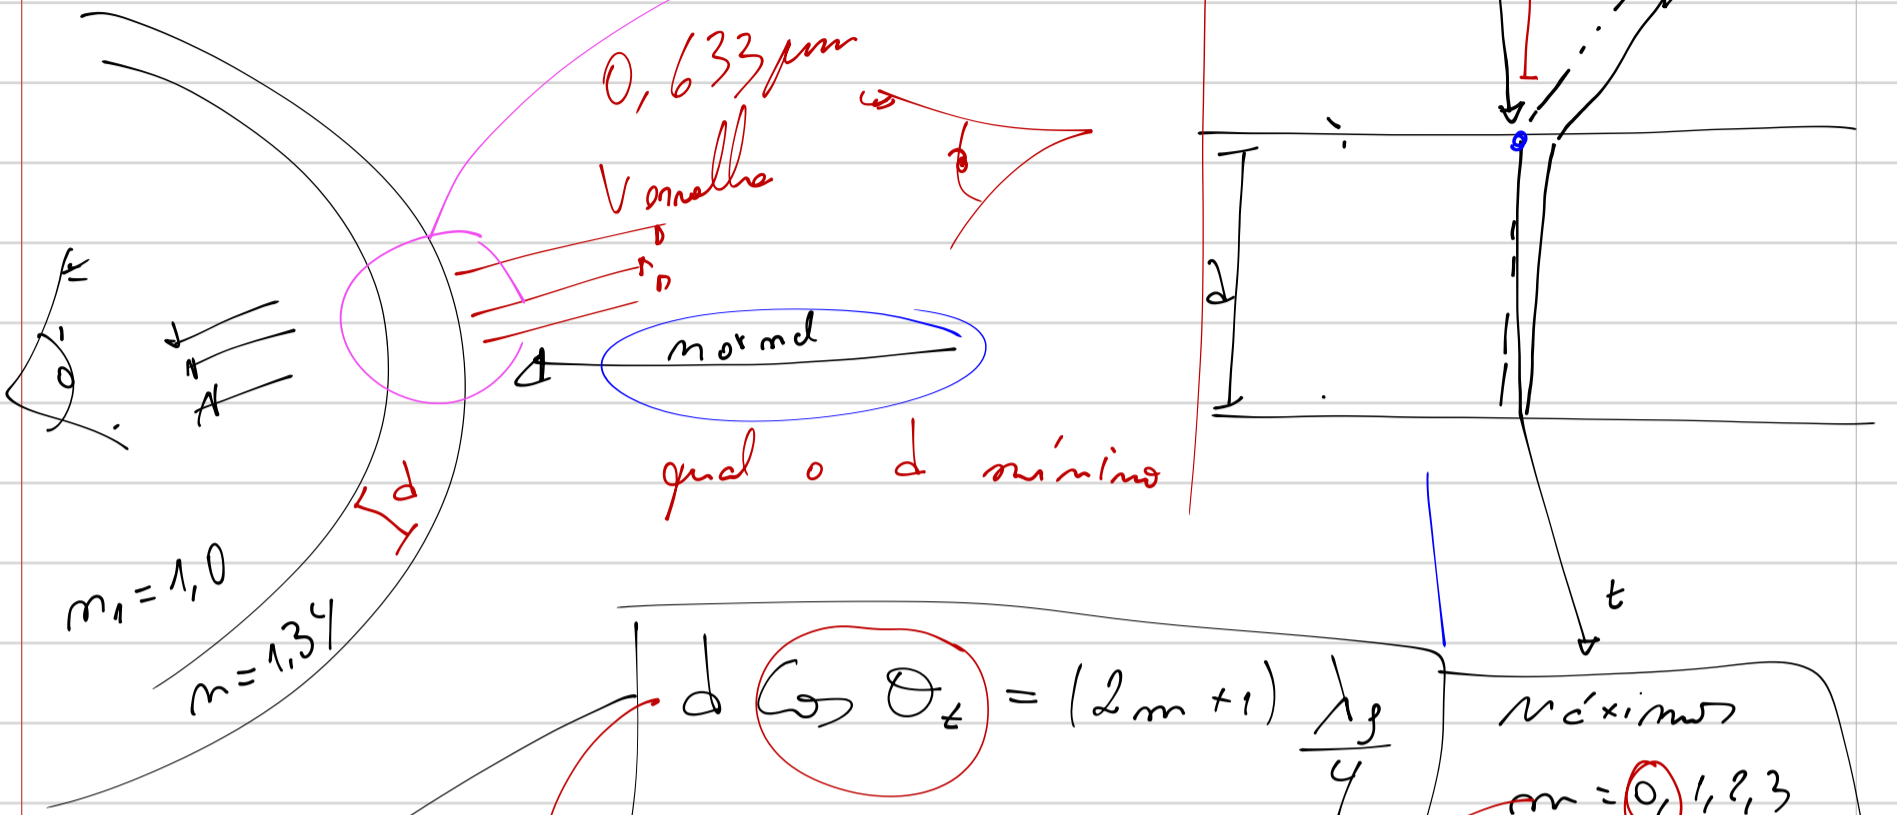 0,633 μm
Vermelho
normal
d
d
qual o d mínimo
n₁ = 1,0
n = 1,34
t
d Cos θt = (2m+1) λf/4
Máximos
m = 0, 1, 2, 3